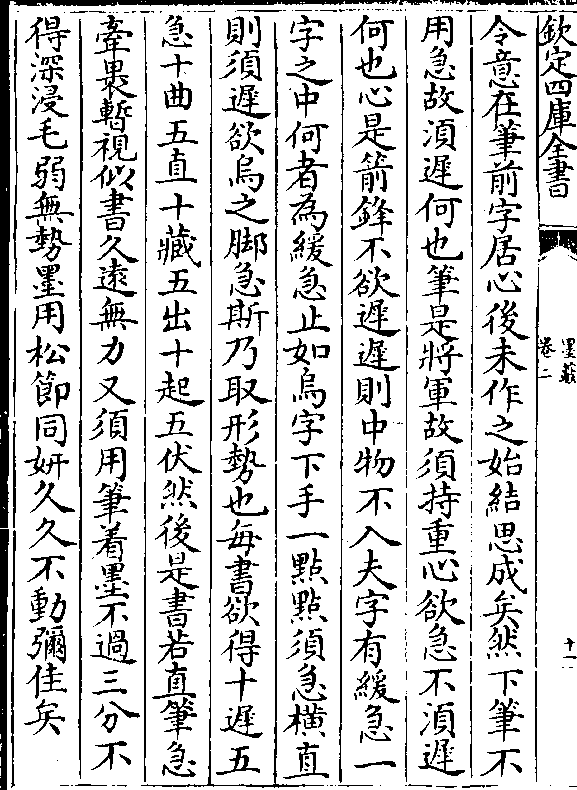 欽定四庫全書
墨藪
卷二
十一
令意在筆前字居心後未作之始結思成矣然下筆不
用急故湏遲何也筆是將軍故須持重心欲急不湏遲
何也心是箭鋒不欲遲遲則中物不入夫字有緩急一
字之中何者為緩急止如烏字下手一點點須急橫直
則須遲欲烏之脚急斯乃取形勢也每書欲得十遲五
急十曲五直十藏五出十起五伏然後是書若直筆急
牽褁暫視似書久遠無力又須用筆着墨不過三分不
得深浸毛弱無勢墨用松節同妍久久不動彌佳矣